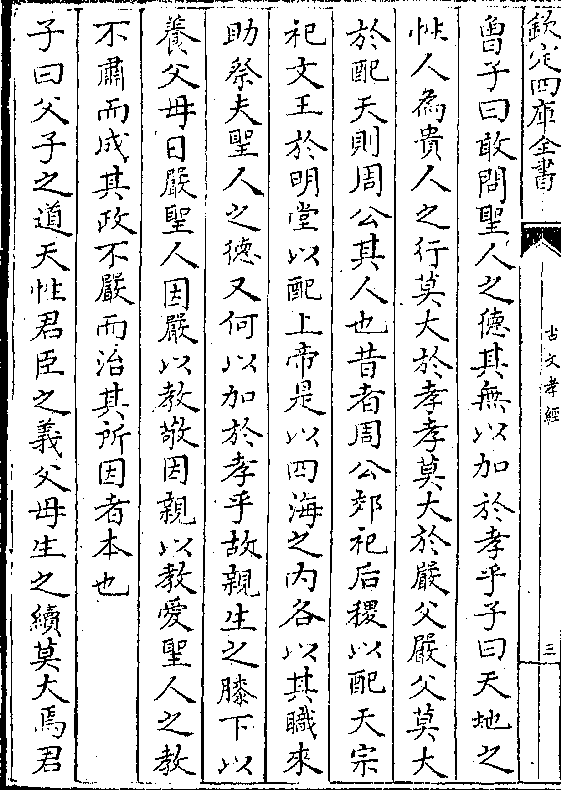 欽定四庫全書
古文孝經
三
曾子曰敢問聖人之德其無以加於孝乎子曰天地之
性人為貴人之行莫大於孝孝莫大於嚴父嚴父莫大
於配天則周公其人也昔者周公郊祀后稷以配天宗
祀文王於明堂以配上帝是以四海之内各以其職來
助祭夫聖人之德又何以加於孝乎故親生之膝下以
養父母日嚴聖人因嚴以教敬因親以教愛聖人之教
不肅而成其政不嚴而治其所因者本也
子曰父子之道天性君臣之義父母生之續莫大焉君